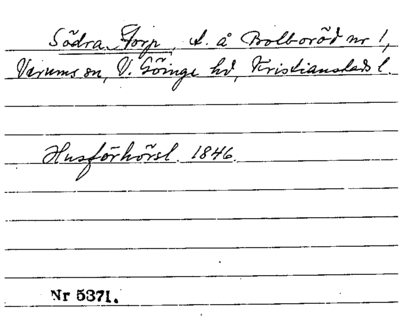 Södra Torp, t. å Bolboröd nr 1,
Verums sn, V. Göinge hd, Kristianstads l.
Husförhörsl. 1846.
Nr 5371.